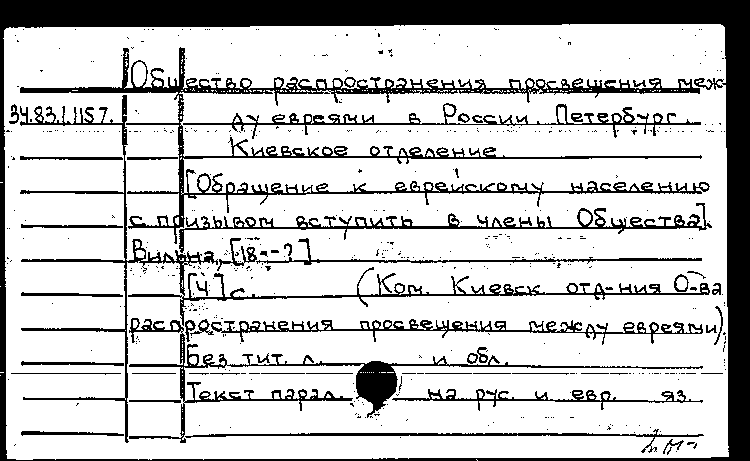 Общество распространения просвещения меж-
34.83.1.1157. ду евреями в России. Петербург.
Киевское отделение.
[Обращение к еврейскому населению
с призывом вступить в члены Общества].
Вильна, [18--?].
[4] с. (Ком. Киевск. отд-ния О-ва
распространения просвещения между евреями)
Без тит. л. и обл.
Текст парал. на рус. и евр. яз.